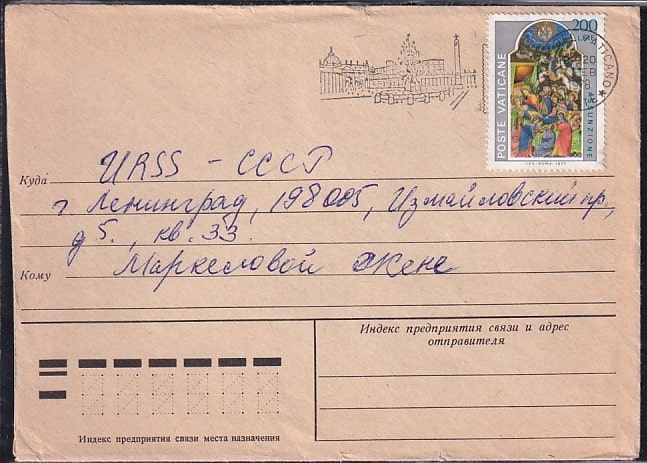 200
POSTE VATICANE
ASSUNZIONE
I.P.S.-ROMA-1977
TICANO
20
URSS - СССР
Куда
г Ленинград, 198005, Измайловский пр,
д 5., кв. 33.
Маркеловой Жене
Кому
Индекс предприятия связи и адрес
отправителя
Индекс предприятия связи места назначения